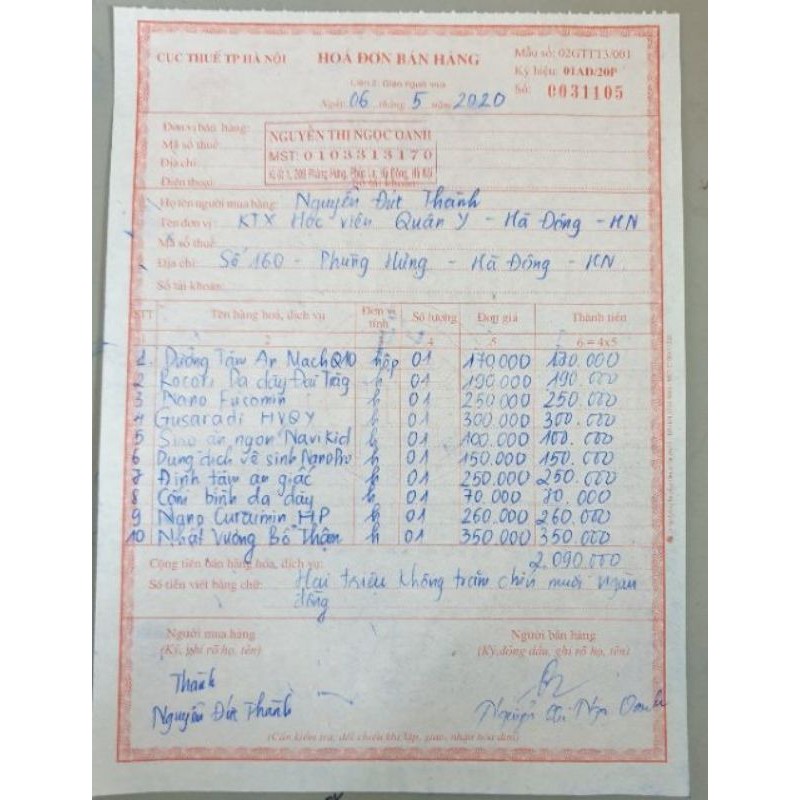 CỤC THUẾ TP HÀ NỘI
HOÁ ĐƠN BÁN HÀNG
Mẫu số: 02GTTT3/001
Liên 2: Giao người mua
Ký hiệu: 01AD/20P
Ngày: 06 tháng 5 năm 2020
Số: 0031105
Đơn vị bán hàng: NGUYỄN THỊ NGỌC OANH
Mã số thuế: MST: 0103313170
Địa chỉ: Ki ốt 1, 209 Phùng Hưng, Phúc La, Hà Đông, Hà Nội
Điện thoại: Số tài khoản:
Họ tên người mua hàng: Nguyễn Đức Thành
Tên đơn vị: KTX Học viện Quân Y - Hà Đông - HN
Mã số thuế:
Địa chỉ: Số 160 - Phùng Hưng - Hà Đông - HN
Số tài khoản:
STT Tên hàng hoá, dịch vụ Đơn vị tính Số lượng Đơn giá Thành tiền
1 2 3 4 5 6 = 4x5
1 Dưỡng Tâm An Mạch Q10 hộp 01 170.000 170.000
2 Rocori Dạ dày Đại Tràng h 01 190.000 190.000
3 Nano Fucomin h 01 250.000 250.000
4 Gusaradi HVQY h 01 300.000 300.000
5 Siro ăn ngon Navikid h 01 100.000 100.000
6 Dung dịch vệ sinh NanoPro h 01 150.000 150.000
7 Định tâm an giấc h 01 250.000 250.000
8 Cốm bình dạ dày h 01 70.000 70.000
9 Nano Curcumin HP h 01 260.000 260.000
10 Nhất Vương Bổ Thận h 01 350.000 350.000
Cộng tiền bán hàng hóa, dịch vụ: 2.090.000
Số tiền viết bằng chữ: Hai triệu không trăm chín mươi ngàn
đồng
Người mua hàng Người bán hàng
(Ký, ghi rõ họ, tên) (Ký, đóng dấu, ghi rõ họ, tên)
Thành
Nguyễn Đức Thành Nguyễn Thị Ngọc Oanh
(Cần kiểm tra, đối chiếu khi lập, giao, nhận hóa đơn)